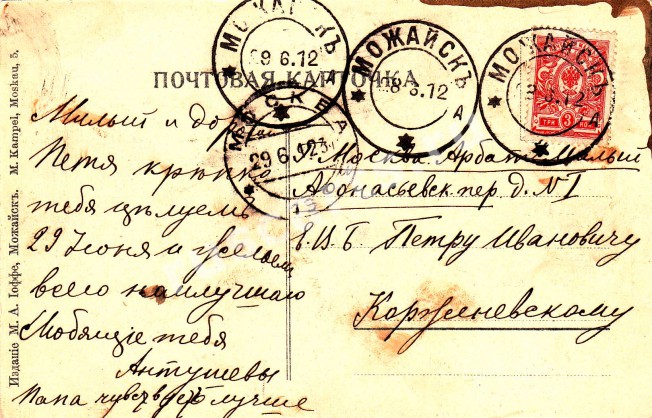 ПОЧТОВАЯ КАРТОЧКА
МОЖАЙСКЪ
29 6.12
А
МОЖАЙСКЪ
28 6.12
А
МОЖАЙСКЪ
28 6.12
А
МОСКВА
29 6 12
ТРИ 3 КОП
Милый и до
Петя крѣпко
тебя цѣлуемъ
29 Іюня и желаем
всего наилучшаго
Любящіе тебя
Антушевы
Папа чувств лучше
Москва. Арбат. Малый
Афонасьевск пер д. N 1
Е.И.Б. Петру Ивановичу
Корженевскому
Изданіе М. А. Іоффе, Можайскъ. M. Kampel, Moskau, 5.